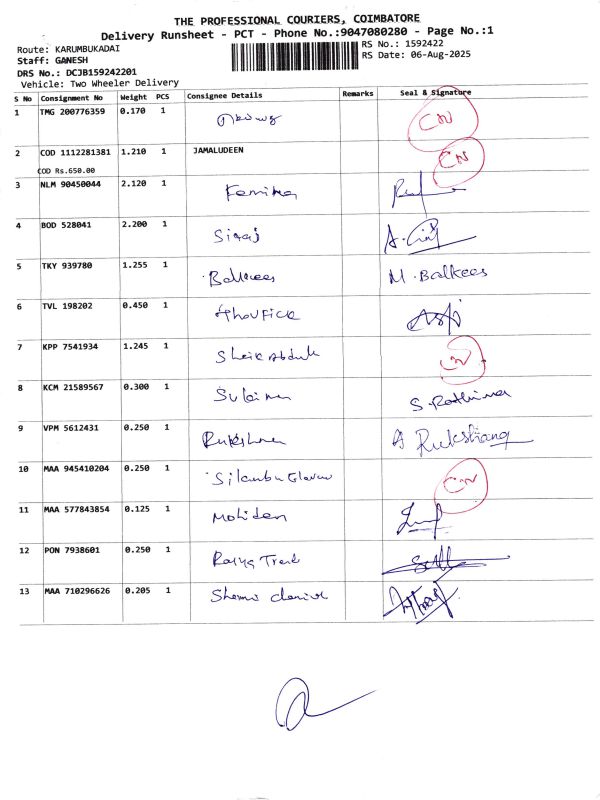 THE PROFESSIONAL COURIERS, COIMBATORE
Delivery Runsheet - PCT - Phone No.:9047080280 - Page No.:1
Route: KARUMBUKADAI
RS No.: 1592422
Staff: GANESH
RS Date: 06-Aug-2025
DRS No.: DCJB159242201
Vehicle: Two Wheeler Delivery
S No Consignment No Weight PCS Consignee Details Remarks Seal & Signature
1 TMG 200776359 0.170 1 CN
2 COD 1112281381 1.210 1 JAMALUDEEN CN
COD Rs.650.00
3 NLM 90450044 2.120 1
4 BOD 528041 2.200 1 Siraj
5 TKY 939780 1.255 1 Balkees M. Balkees
6 TVL 198202 0.450 1 Thoufick
7 KPP 7541934 1.245 1 Sheik Abdul CN
8 KCM 21589567 0.300 1 Sulaiman S. Rathima
9 VPM 5612431 0.250 1 Rukshana A Rukshana
10 MAA 945410204 0.250 1 CN
11 MAA 577843854 0.125 1 Mohideen
12 PON 7938601 0.250 1
13 MAA 710296626 0.205 1